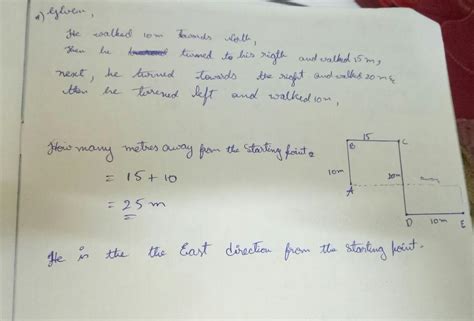 a) Given,
He walked 10m Towards
then he turned to his rigth and walked 15 m,
next, he turned towards the right and walked 20 m &
then he turened left and walked 10m,
How many metres away from the starting point
= 15 + 10
= 25 m
He is the the East direction from the starting point.
15
B
C
10m
20m
A
D
10m
E